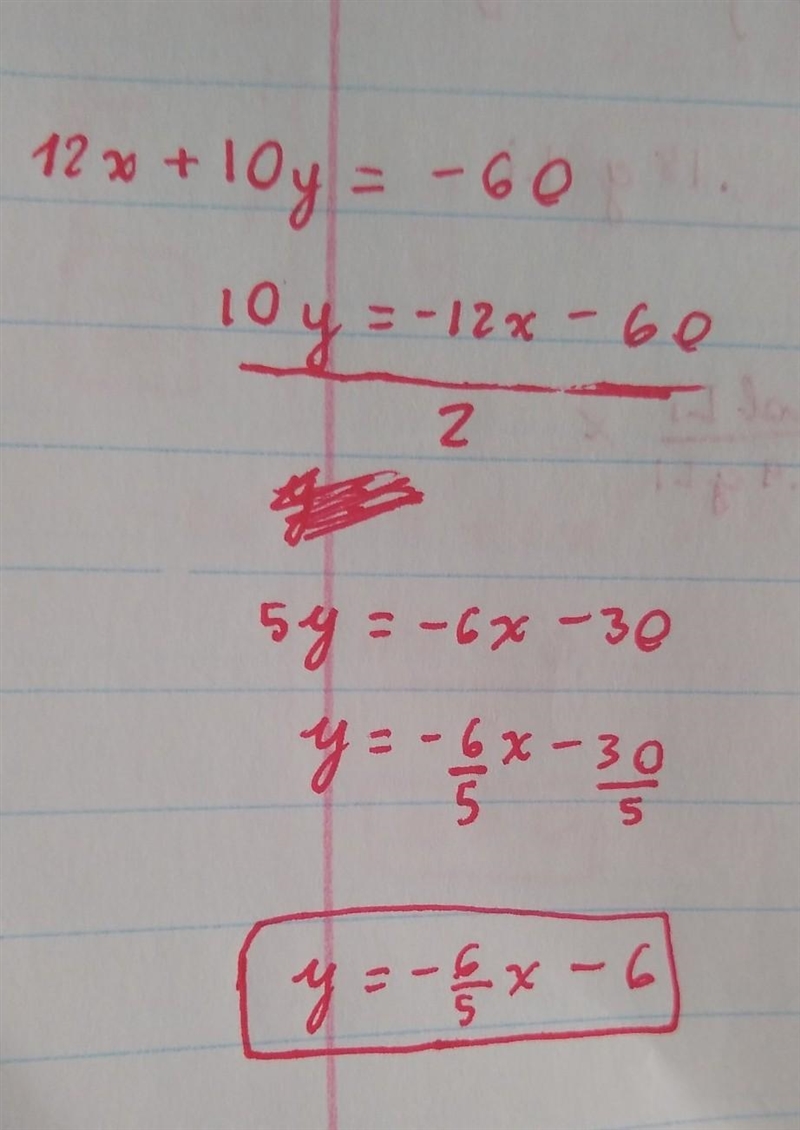 12x + 10y = -60
10y = -12x - 60
2
5y = -6x - 30
y = -6/5 x - 30/5
y = -6/5 x - 6